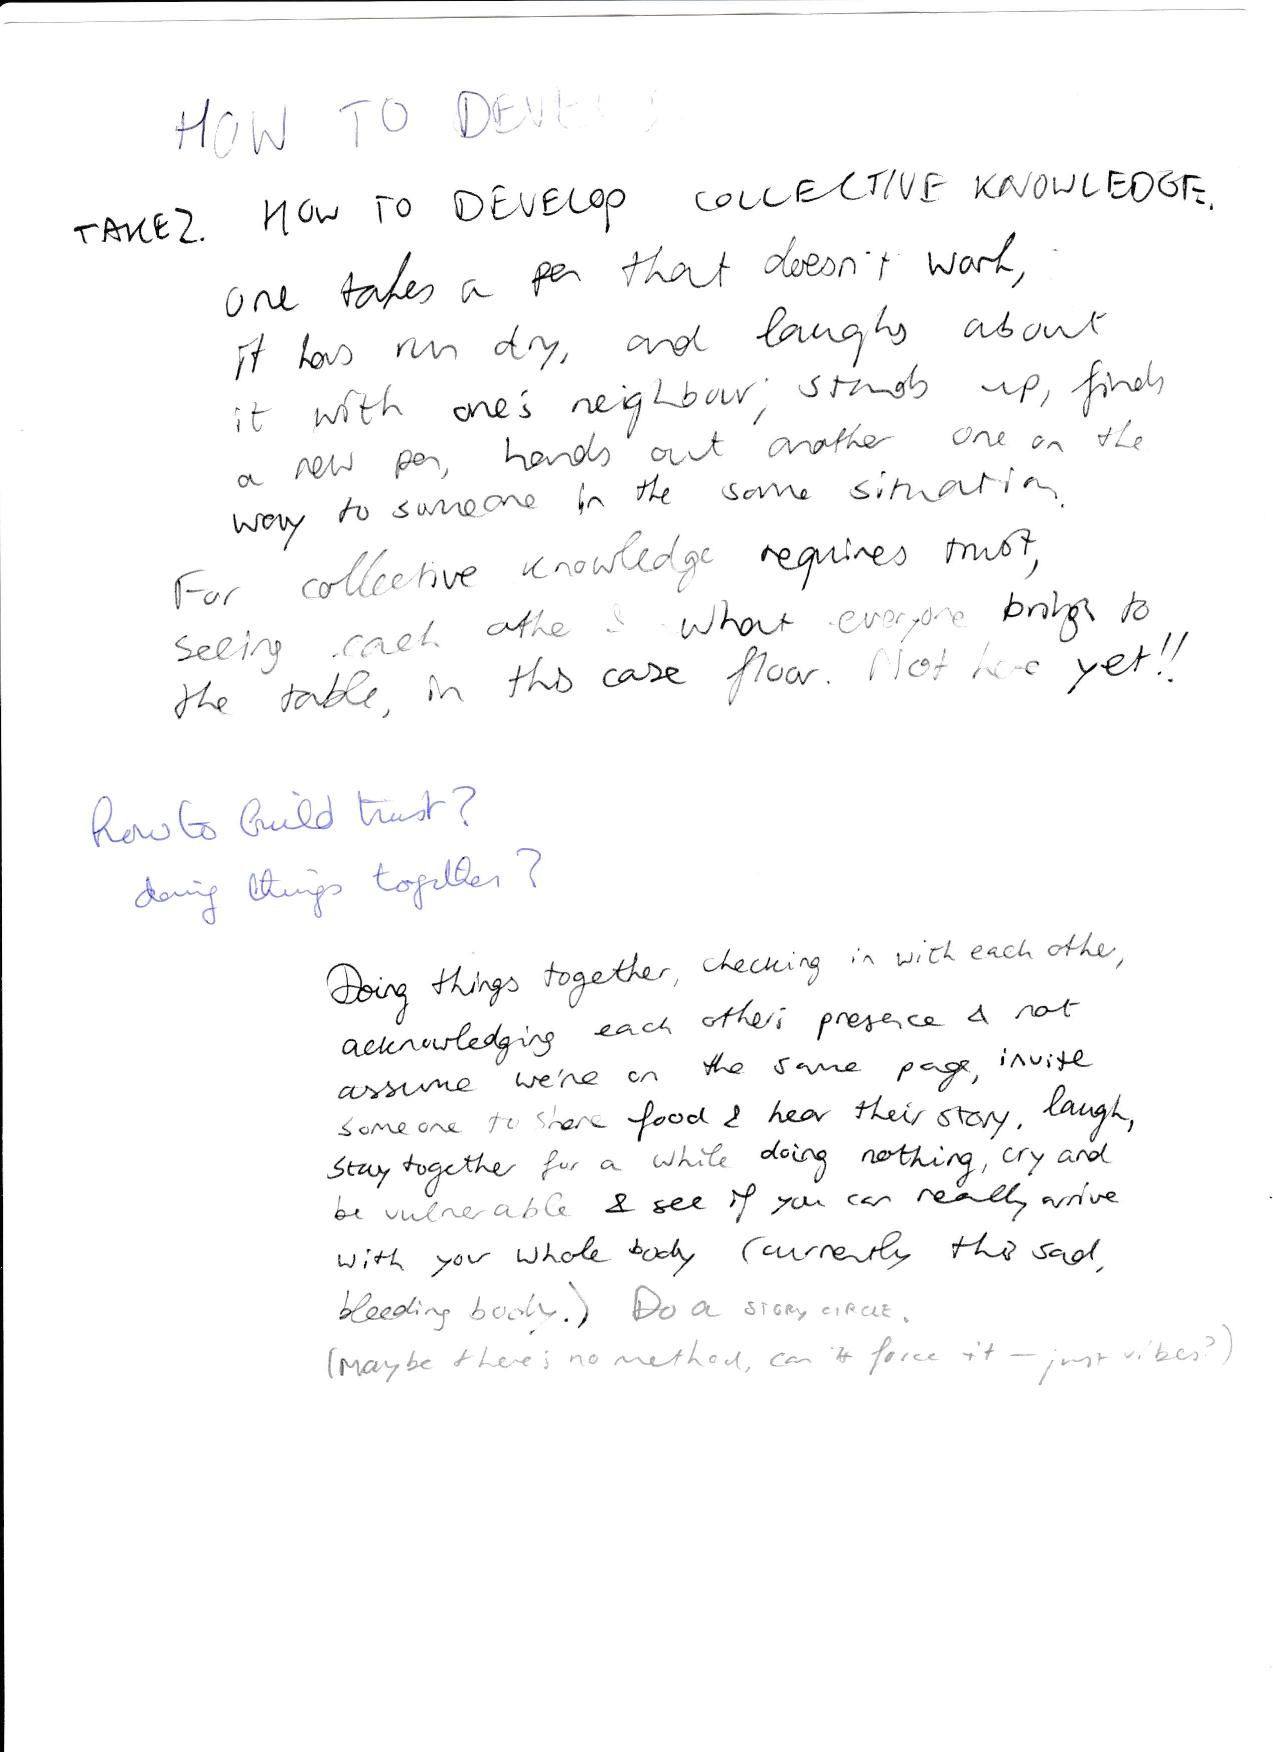 HOW TO DEVE
TAKE 2. HOW TO DEVELOP COLLECTIVE KNOWLEDGE.
one takes a pen that doesn't work,
it has run dry, and laughs about
it with one's neighbour; stands up, finds
a new pen, hands out another one on the
way to someone in the same situation.
For collective knowledge requires trust,
seeing each othe & what everyone brings to
the table, in this case floor. Not here yet!!
how to build trust?
doing things together?
Doing things together, checking in with each other,
acknowledging each other's presence & not
assume we're on the same page, invite
someone to share food & hear their story, laugh,
stay together for a while doing nothing, cry and
be vulnerable & see if you can really arrive
with your whole body (currently this sad,
bleeding body.) Do a STORY CIRCLE.
(Maybe there's no method, can't force it – just vibes?)